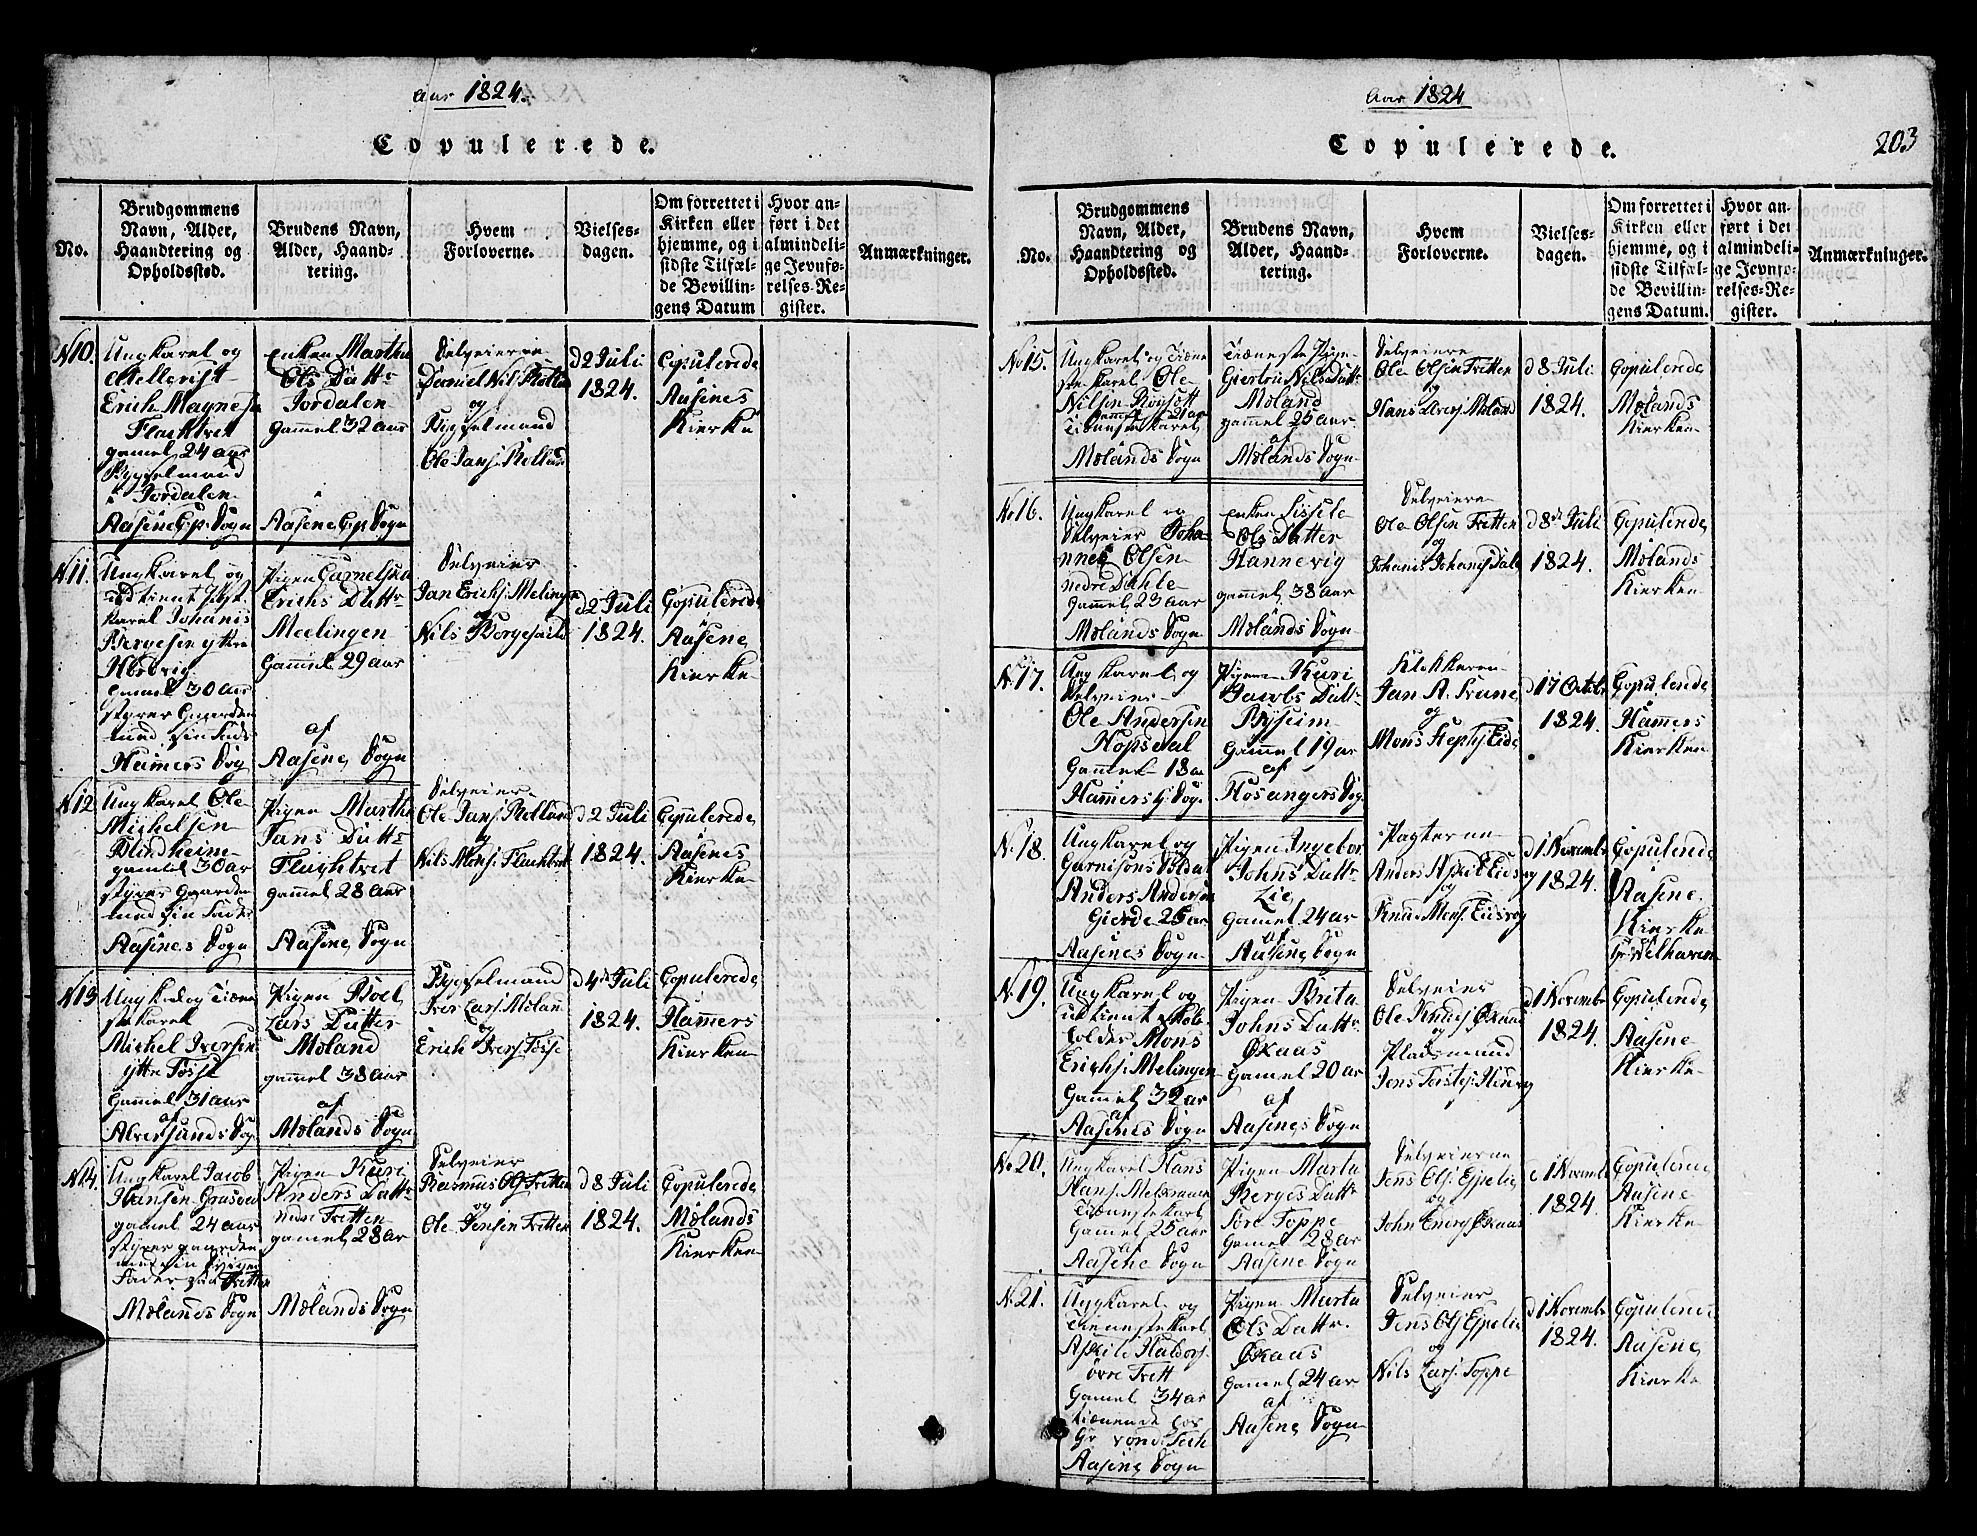 Aar 1824.
Copulerede.
No.
Brudgommens
Navn, Alder,
Haandtering og
Opholdssted.
Brudens Navn,
Alder, Haand-
tering.
Hvem
Forloverne.
Vielses-
dagen.
Om forrettet i
Kirken eller
hjemme, og i
sidste Tilfæl-
de Bevillin-
gens Datum
Hvor an-
ført i det
almindeli-
ge Jevnfø-
relses-Re-
gister.
Anmærkninger.
N10.
Ungkarel og
Erich Magnesen
Flachtvet
gamel 24 aar
Bygselmand
i Jordalen
Aasene Gp. Sogn
Enken Martha
Ols Dattr
Jordalen
gammel 32 aar
Aasene Gp Sogn
Selveierne
Daniel Nils. Rolland
og
Bygselmand
Ole Jans. Rolland
d 2 Juli
1824.
Copulerede
Aasenes
Kierke
N11.
Ungkarel og
karel Johanis
Bergesen yttre
Hordvig
Gamel 30 aar
styrer Gaarden
med sin Fader
Hamers Sogn
Pigen Carnelska
Erichs Dattr
Meelingen
Gammel 29 aar
af
Aasene Sogn
Selveier
Jan Erichs. Melingen
og
Nils Borgeseide
d 2 Juli
1824.
Copulerede
Aasene
Kierke
N12
Ungkarel Ole
Michelsen
Blindheim
gamel 30 ar
styrer Gaarden
med sin Fader
Aasenes Sogn
Pigen Martha
Jans Dattr
Flaghtvet
gammel 28 aar
Aasene Sogn
Selveier
Ole Jans. Rolland
og
Nils Mons. Flachtvet
d 2 Juli
1824.
Copulerede
Aasenes
Kierke
N13
Ungkarel og Tiæne
stekarel
Michel Iversen
yttre Tosse
Gammel 31 aar
af
Alversunds Sogn
Pigen Boel
Lars Datter
Moland
gammel 38 aar
af
Molands Sogn
Bygselmand
Iver Lars. Moland
og
Erich Ivers. Tosse
d 4de Juli
1824.
Copulerede
Hamers
Kierken
N14.
Ungkarel Jacob
Hansen Grasdal
gamel 24 aar
styrer gaarden
med sin Svigerfader
paa Tvetten
Molands Sogn
Pigen Kuri
Anders Dattr
nedre Tvetten
gamel 28 ar
Molands Sogn
Selveier
Rasmus Ols. Tvetten
og
Ole Jensen Tvetten
d 8 Juli
1824.
Copulerede
Molands
Kierken
Aar 1824
203
Copulerede.
No.
Brudgommens
Navn, Alder,
Haandtering og
Opholdssted.
Brudens Navn,
Alder, Haand-
tering.
Hvem
Forloverne.
Vielses-
dagen.
Om forrettet i
Kirken eller
hjemme, og i
sidste Tilfæl-
de Bevillin-
gens Datum.
Hvor an-
ført i det
almindeli-
ge Jevnfø-
relses-Re-
gister.
Anmærkninger.
No 15.
Ungkarel og Tiæne
stekarel Ole
Nilsen
Gammel 21 ar
Molands Sogn
Tiæneste Pigen
Giertrü Nils Dattr
Moland
gammel 25 aar
af
Molands Sogn
Selveiere
Ole Olsen Tvetten
og
Hans Ivers. Moland
d 8 Juli
1824.
Copulerede
Molands
Kierken
No 16.
Ungkarel og
Selveier Joha-
nnes Olsen
nedre Dahle
Gammel 23 aar
Molands Sogn
Enken Sissele
Ols Datter
Hannevig
gammel 38 aar
Molands Sogn
Selveiere
Ole Olsen Tvetten
og
Johanis Johanis. Dale
d 8de Juli
1824.
Copulerede
Molands
Kierken
N17.
Ungkarel og
Selveier
Ole Andersen
Hopsdal
Gammel 18 a
Hamers G: Sogn
Pigen Kuri
Jacobs Dattr
Byseim
Gammel 19 ar
af
Hosangers Sogn
Klokkeren
Jan A. Trune
og
Mons Steph. Eide
d 17 Octobr
1824.
Copulerede
Hamers
Kierken
N. 18.
Ungkarel og
Garnisons Soldat
Anders Andersen
Gierde 25 ar
Aasenes Sogn
Pigen Ingebor
Johns Dattr
Lie
Gamel 24 ar
af
Aasene Sogn
Pagterne
og
Knud Mons. Eidsvog
d 1 Novembr
1824.
Copulerede
Aasene
Kierke
Hr: Welhaven
N. 19.
Ungkarel og
udtient Skole
holder Mons
Erichs. Melingen
Gamel 32 ar
af
Aasenes Sogn
Pigen Brita
Johns Dattr
Økaas
Gamel 20 ar
af
Aasenes Sogn
Selveier
Ole Knuds. Økaas
og
Pladsmand
d 1 Novembr
1824.
Copulerede
Aasene
Kierke
No 20.
Ungkarel Hans
Tiænestekarl
Gamel 25 aar
af
Aasene Sogn
Pigen Marta
Berges Dattr
Store Toppe
Gamel 28 ar
Aasene Sogn
Selveierne
Jens Ols. Eppelie
og
John Eners. Økaas
d 1 Novembr
1824.
Copulerede
Aasene
Kierke
N. 21.
Ungkarel og
Tienestekarl
Askild Haldors.
övre Tvett
Gamel 34 ar
tiænende hos
Aasene Sogn
Pigen Marta
Ols Dattr.
Økaas
Gamel 24 ar
af
Aasene Sogn
Selveier
Jens Ols. Eppelie
og
Nils Lars. Toppe
d 1 Novembr
1824.
Copulerede
Aasene
Kierke